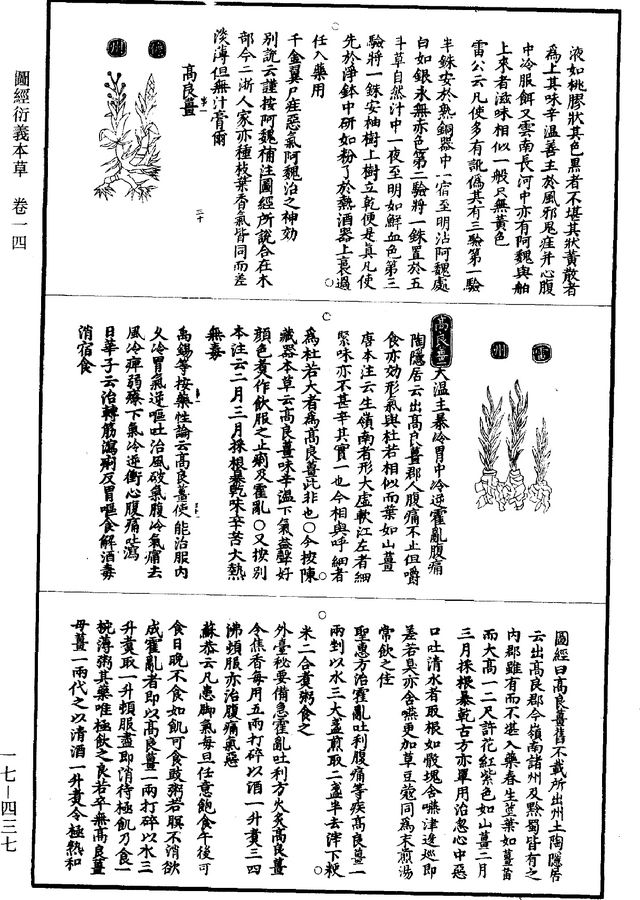 圖經衍義本草 卷一四
液如桃膠狀其色黑者不堪其狀黃散者
為上其味辛溫善主於風邪鬼疰并心腹
中冷服餌又雲南長河中亦有阿魏與舶
上來者滋味相似一般只無黃色
雷公云凡使多有訛偽其有三驗第一驗
半銖安於熟銅器中一宿至明沾阿魏處
白如銀永無赤色第二驗將一銖置於五
斗草自然汁中一夜至明如鮮血色第三
驗將一銖安柚樹上樹立乾便是真凡使
先於淨鉢中研如粉了於熱酒器上裛過
任入藥用
千金翼尸疰惡氣阿魏治之神効
別說云謹按阿魏補注圖經所說合在木
部今二浙人家亦種枝葉香氣皆同而差
淡薄但無汁膏爾
高良薑
州
高良薑
大溫主暴冷胃中冷逆霍亂腹痛
陶隱居云出高良郡人腹痛不止但嚼
食亦効形氣與杜若相似而葉如山薑
唐本注云生嶺南者形大虛軟江左者細
緊味亦不甚辛其實一也今相與呼細者
為杜若大者為高良薑此非也○今按陳
藏器本草云高良薑味辛溫下氣益聲好
顏色煮作飲服之止痢及霍亂○又按別
本注云二月三月採根暴乾味辛苦大熱
無毒
禹錫等按藥性論云高良薑使能治腹內
久冷胃氣逆嘔吐治風破氣腹冷氣痛去
風冷痹弱療下氣冷逆衝心腹痛吐瀉
日華子云治轉筋瀉痢反胃嘔食解酒毒
消宿食
雷
州
圖經曰高良薑舊不載所出州土陶隱居
云出高良郡今嶺南諸州及黔蜀皆有之
內郡雖有而不堪入藥春生莖葉如薑苗
而大高一二尺許花紅紫色如山薑二月
三月採根暴乾古方亦單用治忽心中惡
口吐清水者取根如骰塊含嚥津逡巡即
差若臭亦含嚥更加草豆蔻同為末煎湯
常飲之佳
聖惠方治霍亂吐利腹痛等疾高良薑一
兩剉以水三大盞煎取二盞半去滓下粳
米二合煮粥食之
外臺秘要備急霍亂吐利方火炙高良薑
令焦香每用五兩打碎以酒一升煮三四
沸頓服亦治腹痛氣惡
蘇恭云凡患腳氣每旦任意飽食午後可
食日晚不食如飢可食豉粥若腹不消欲
成霍亂者即以高良薑一兩打碎以水三
升煮取一升頓服盡即消待極飢乃食一
椀薄粥其藥唯極飲之良若卒無高良薑
母薑一兩代之以清酒一升煮令極熟和
一七—四三七